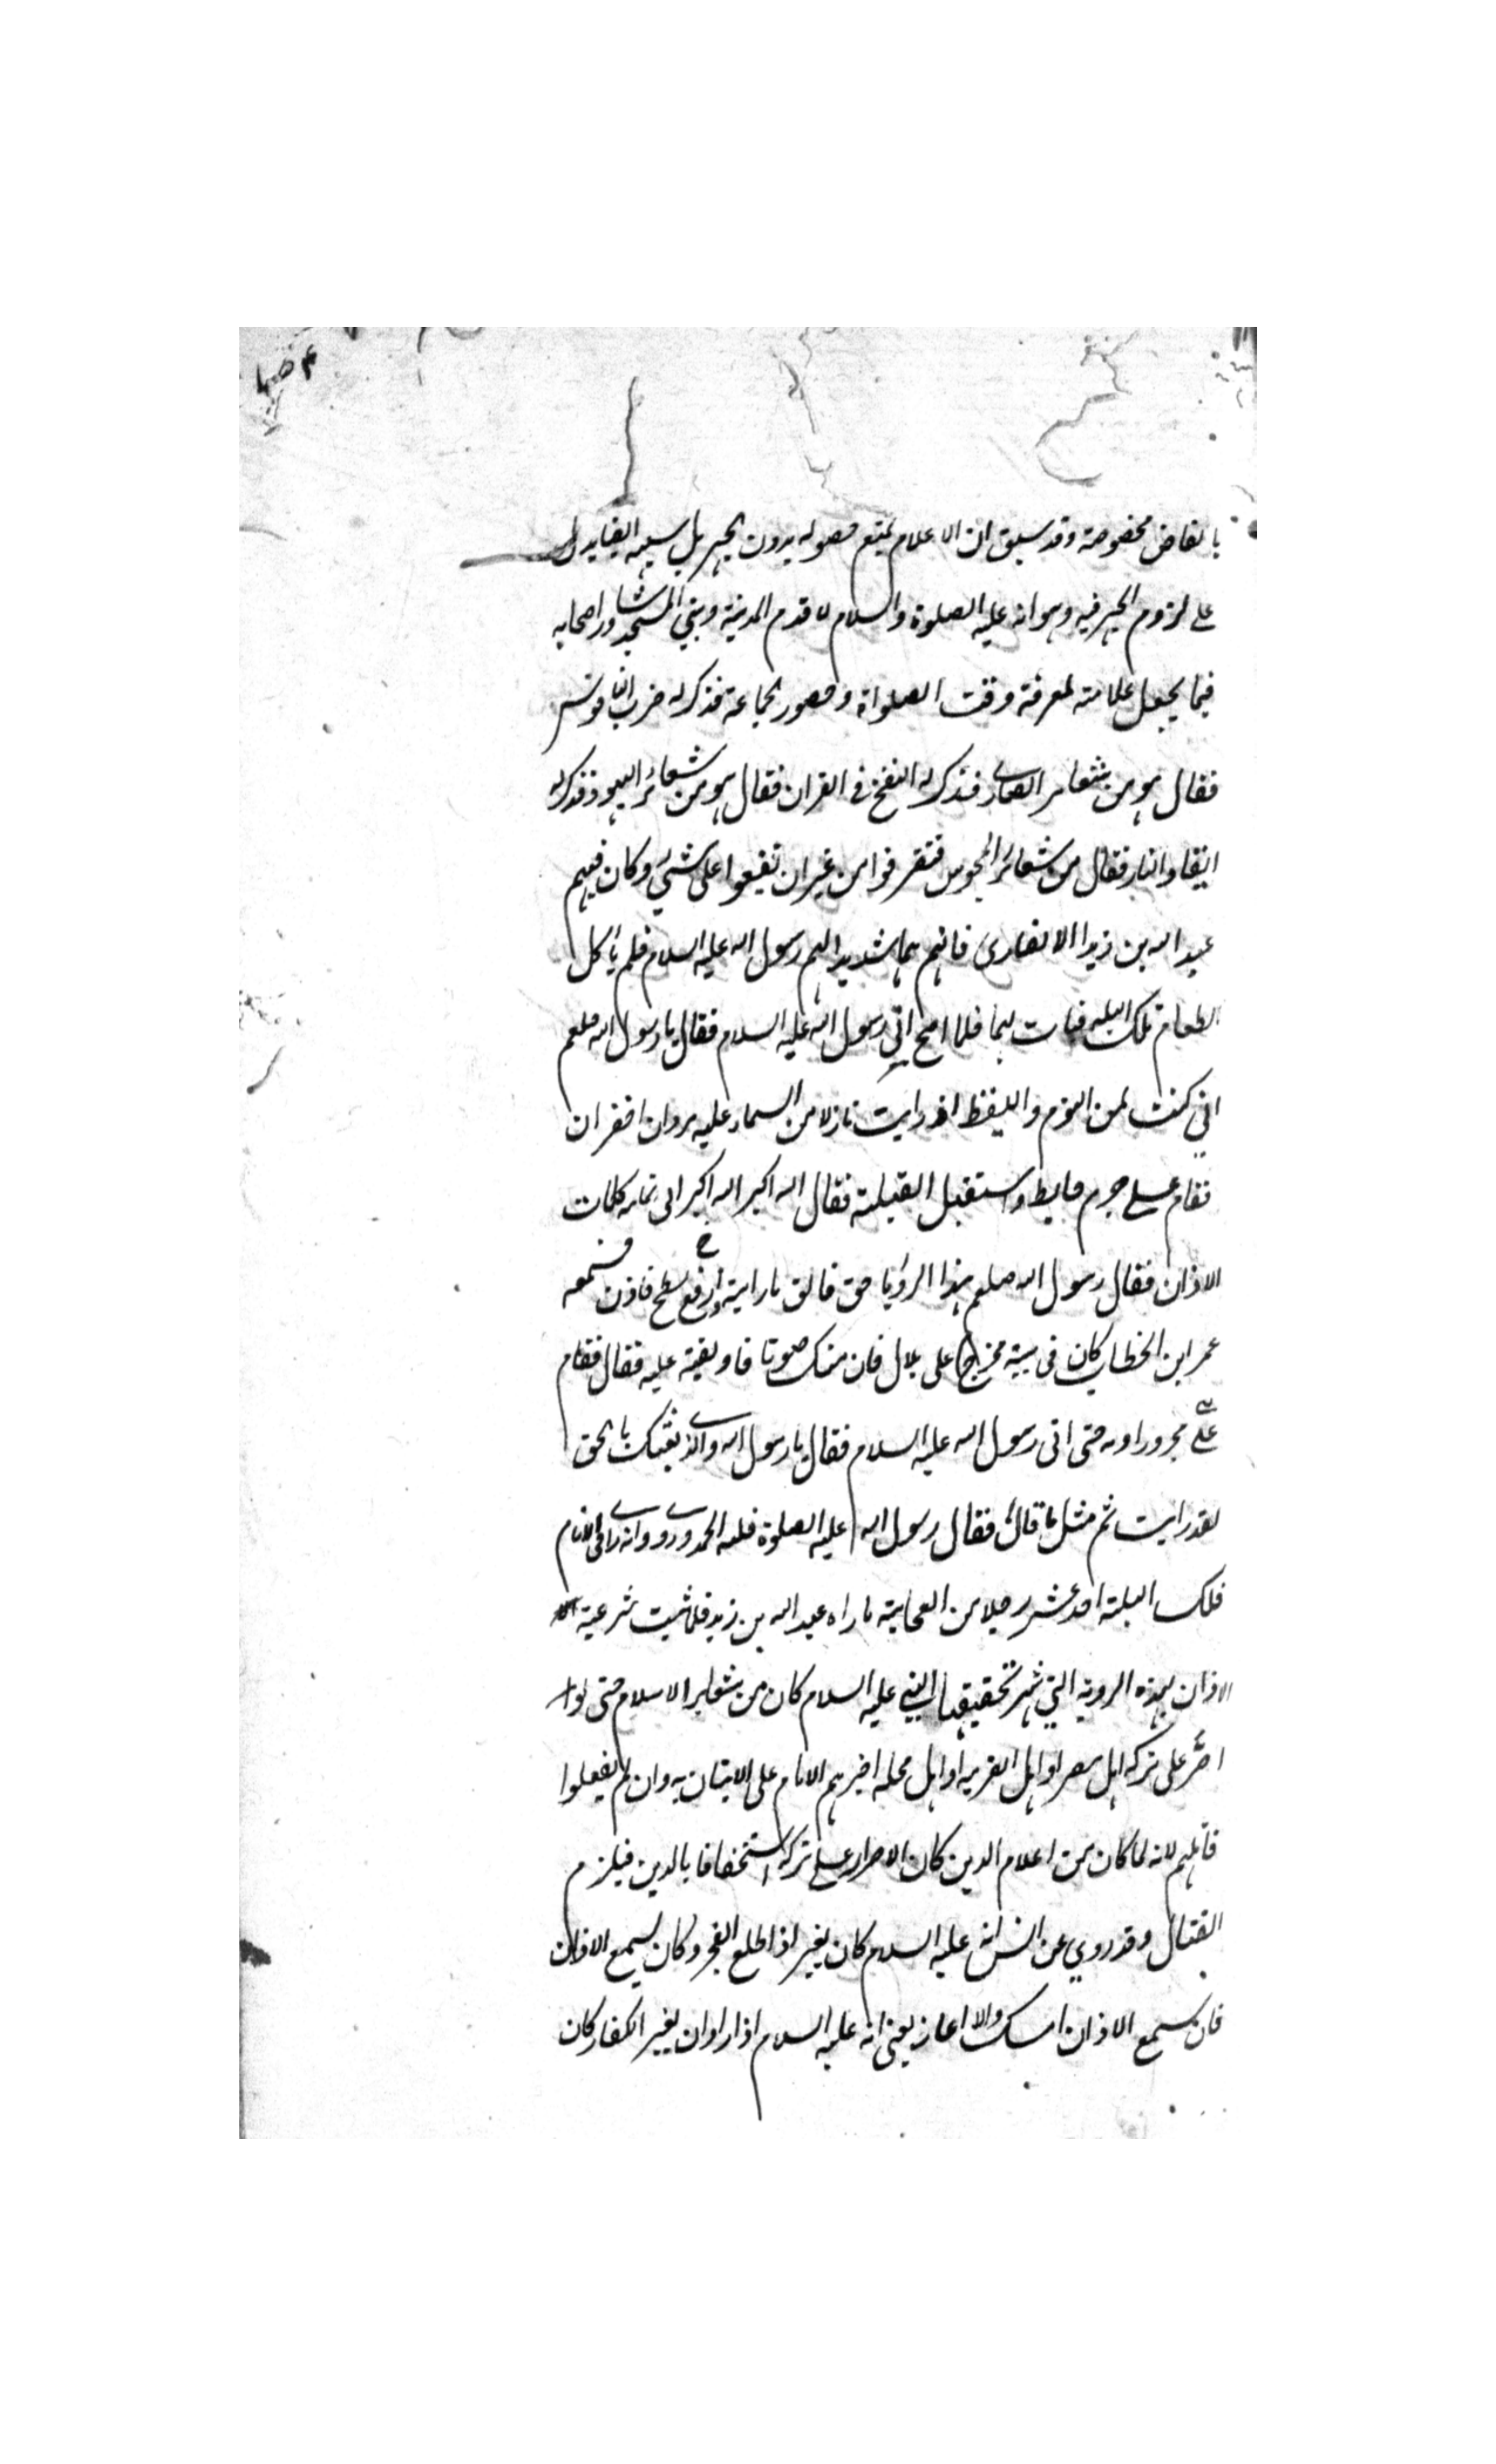 بالفاظ مخصوصة وقد سبق ان الاعلام يمتنع حصوله بدون الجهر بل سببه ايضا يدل
على لزوم الجهر فيه وهو انه عليه الصلوة والسلام لا قدم المدينة وبني المسجد شاور اصحابه
فيما يجعل علامته لمعرفة وقت الصلواة وحصور الجماعة فذكر له ضرب الناقوس
فقال هو من شعاير النصارى فذكر له النفخ في القران فقال هو من شعائر اليهود فذكر له
ايقاد النار فقال من شعائر المجوس فتفرقوا من غير ان تفيعوا على شئ وكان فيهم
عبد الله بن زيد الانصارى فاهتم هما شديد الهم رسول الله عليه السلام فلم ياكل
الطعام تلك الليلة فبات لهما فلما اصبح اتي رسول الله عليه السلام فقال يا رسول الله صلعم
اني كنت لمن النوم واليقظ اذ رايت نازلا من السماء عليه بردان اخضران
فقام على جرم حايط واستقبل القبلة فقال الله اكبر الله اكبر الى تمامه كلمات
الاذان فقال رسول الله صلعم هذا الرؤيا حق فالق ما رايته وارفع سطح فاذن فسمعه
عمر ابن الخطاب كان في بيته فخرج على بلال فان منك صوتا فاو بقية عليه فقال فقام
علي مجرور اوه حتى اتى رسول الله عليه السلام فقال يا رسول الله والذي بعثك بالحق
لقد رايت ثم مثل ما قال فقال رسول الله عليه الصلوة فلله الحمد وروى انه راى في الانام
فلك البلته احد عشر رجلا من الصحابية ما راه عبد الله بن زيد فلما ثبت شرعية
الاذان بهذه الروية التي شهر تحقيقها النبي عليه السلام كان من شعاير الاسلام حتى لو
اصر على تركه اهل مصر او اهل القريه او اهل محله اخبرهم الامام على الاتيان به وان لم يفعلوا
قاتلهم لانه لما كان من اعلام الدين كان الاصرار على تركه استخفافا بالدين فيلزم
القتال وقد روي عن انس انه عليه السلام كان يغير اذا طلع الفجر وكان يسمع الاذان
فان سمع الاذان امسك والا اغار يعني انه عليه السلام اذا اراد ان يغير الكفار كان